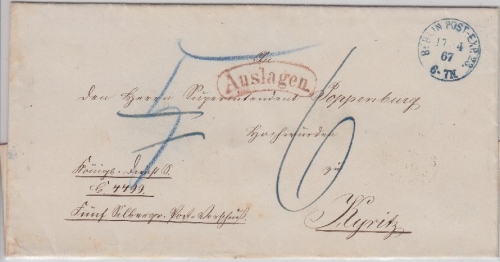 BERLIN POST-EXP. 22.
17 4
67
6-7N.
An
Auslagen.
den Herrn Superintendent Poppenburg
Hochwürden
zu
Kyritz
Königl. Dienst S.
4499
Fünf Silbergr. Post-Vorschuß.
5
6